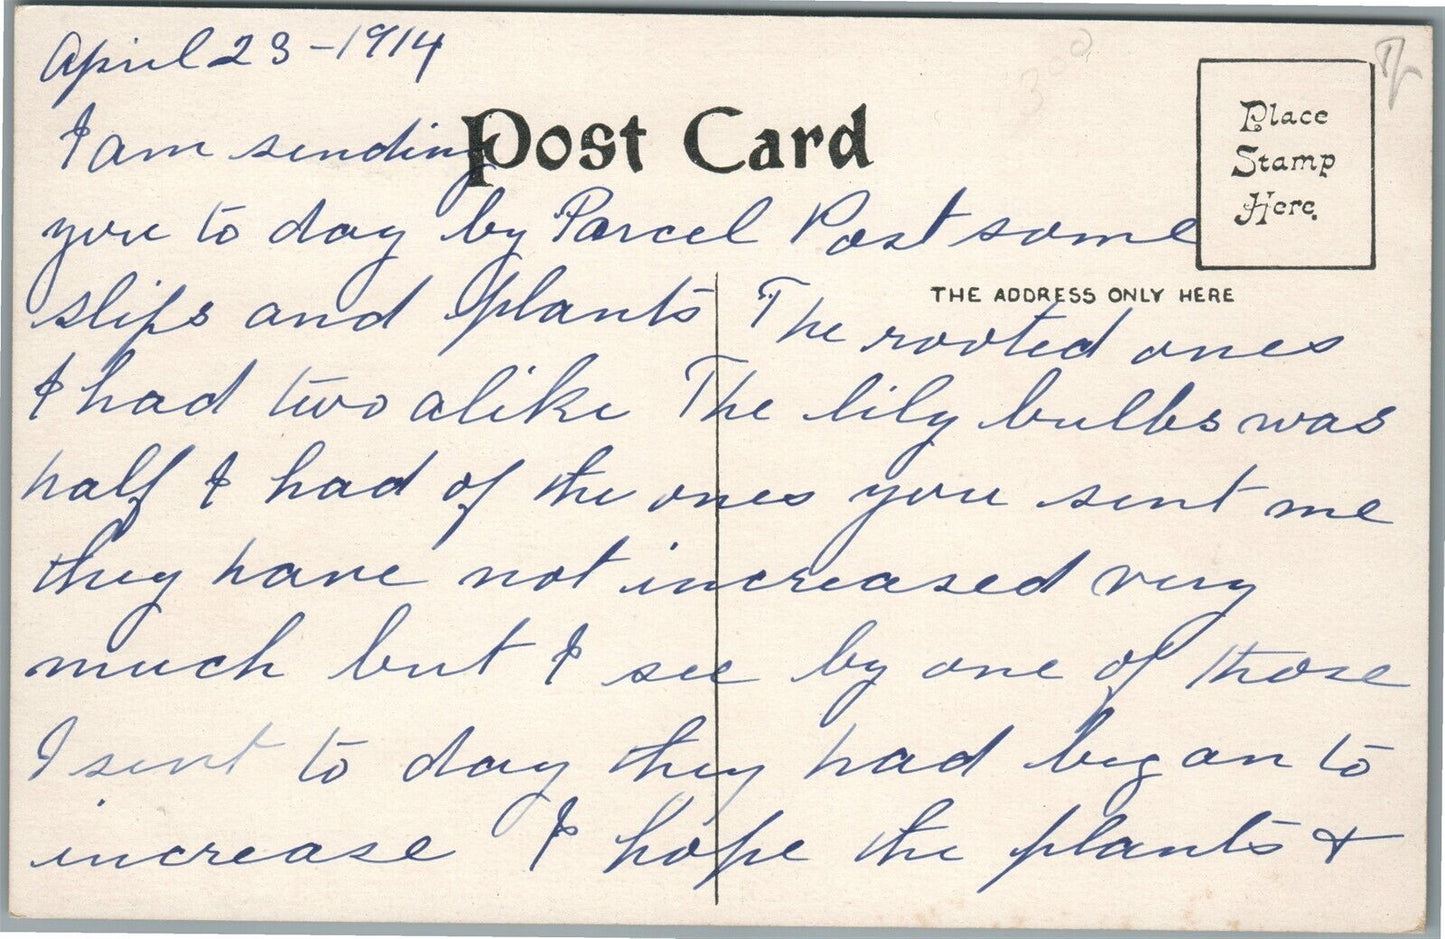 April 23-1914
Post Card
Place
Stamp
Here.
I am sending
you to day by Parcel Post some
THE ADDRESS ONLY HERE
slips and plants The rooted ones
I had two alike The lily bulbs was
half I had of the ones you sent me
they have not increased very
much but I see by one of those
I sent to day they had began to
increase I hope the plants +